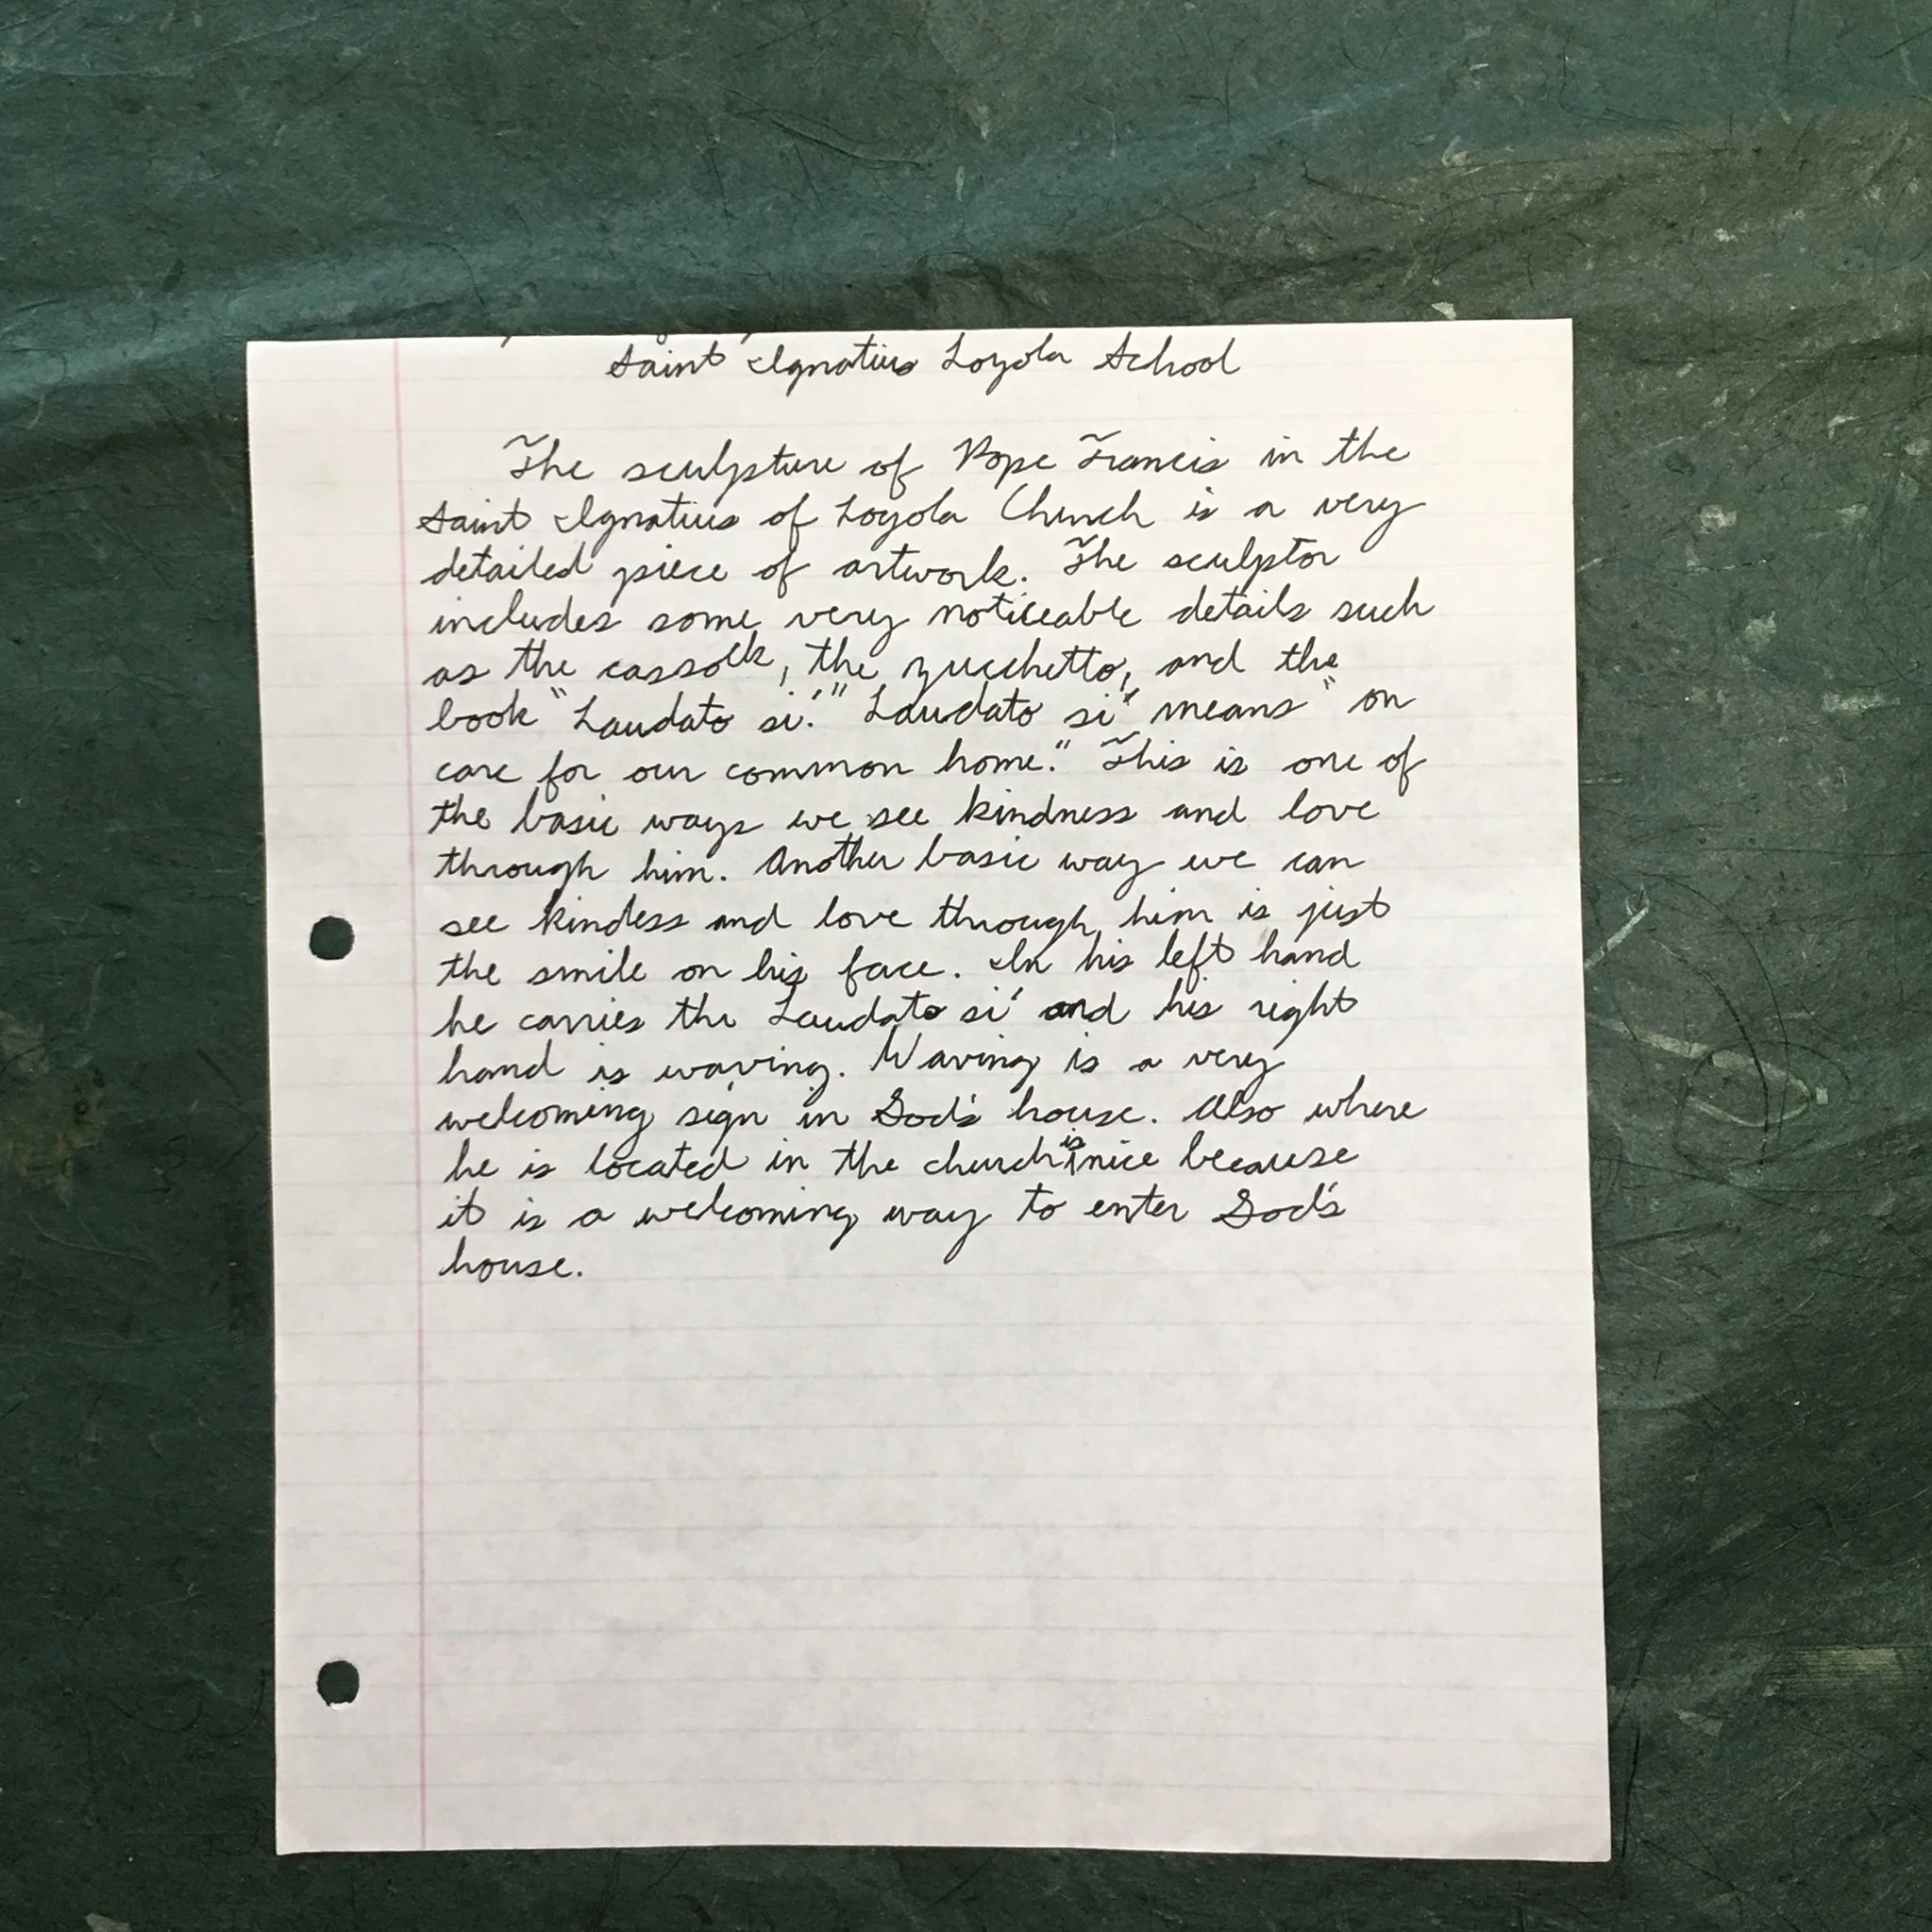 Saint Ignatius Loyola School
The sculpture of Pope Francis in the
Saint Ignatius of Loyola Church is a very
detailed piece of artwork. The sculptor
includes some very noticeable details such
as the cassock, the zucchetto, and the
book "Laudato si'." Laudato si' means "on
care for our common home." This is one of
the basic ways we see kindness and love
through him. Another basic way we can
see kindess and love through him is just
the smile on his face. In his left hand
he carries the Laudato si' and his right
hand is waving. Waving is a very
welcoming sign in God's house. Also where
he is located in the church is nice because
it is a welcoming way to enter God's
house.